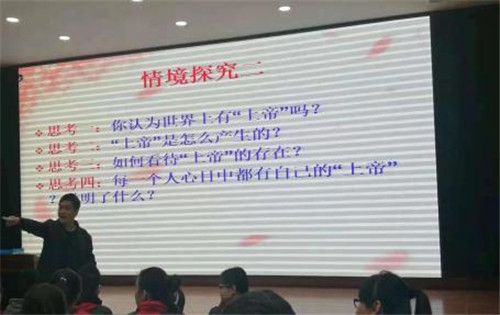 情境探究二
❖思考一：你认为世界上有“上帝”吗？
❖思考二：“上帝”是怎么产生的？
❖思考三：如何看待“上帝”的存在？
❖思考四：每一个人心目中都有自己的“上帝”
？ 明了什么？